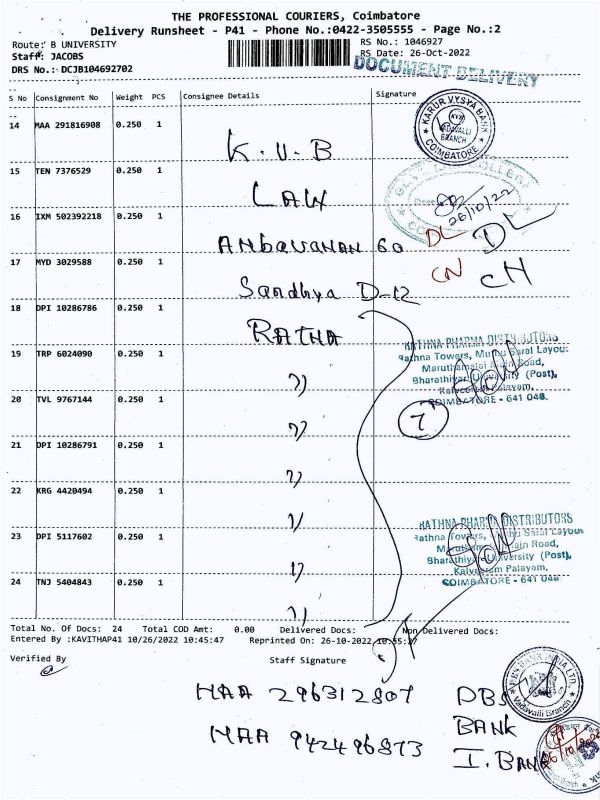 THE PROFESSIONAL COURIERS, Coimbatore
Delivery Runsheet - P41 - Phone No.:0422-3505555 - Page No.:2
Route: B UNIVERSITY RS No.: 1046927
Staff: JACOBS RS Date: 26-Oct-2022
DRS No.: DCJB104692702
DOCUMENT DELIVERY
S No Consignment No Weight PCS Consignee Details Signature
14 MAA 291816908 0.250 1 K.V.B
KARUR VYSYA BANK
VADAVALLI
BRANCH
COIMBATORE
15 TEN 7376529 0.250 1 LAW
26/10/22
16 IXM 502392218 0.250 1 Ambavanan 60 DL DL
17 MYD 3029588 0.250 1 Sandhya D-12 CN CH
18 DPI 10286786 0.250 1 RATHA
RATHNA PHARMA DISTRIBUTORS
Rathna Towers,
Maruthamalai Main Road,
Bharathiyar University (Post),
Kalveeram Palayam,
COIMBATORE - 641 046.
19 TRP 6024090 0.250 1 "
20 TVL 9767144 0.250 1 "
7
21 DPI 10286791 0.250 1 "
22 KRG 4420494 0.250 1 "
23 DPI 5117602 0.250 1 "
RATHNA PHARMA DISTRIBUTORS
Rathna Towers,
Main Road,
Bharathiyar University (Post),
Kalveeram Palayam,
COIMBATORE - 641 046
24 TNJ 5404843 0.250 1 "
Total No. Of Docs: 24 Total COD Amt: 0.00 Delivered Docs: Non Delivered Docs:
Entered By :KAVITHAP41 10/26/2022 10:45:47 Reprinted On: 26-10-2022 10:55:27
Verified By Staff Signature
MAA 296312807 DBS
BANK
MAA 942496873 I.BANK
DBS BANK INDIA LTD.
Vadavalli Branch